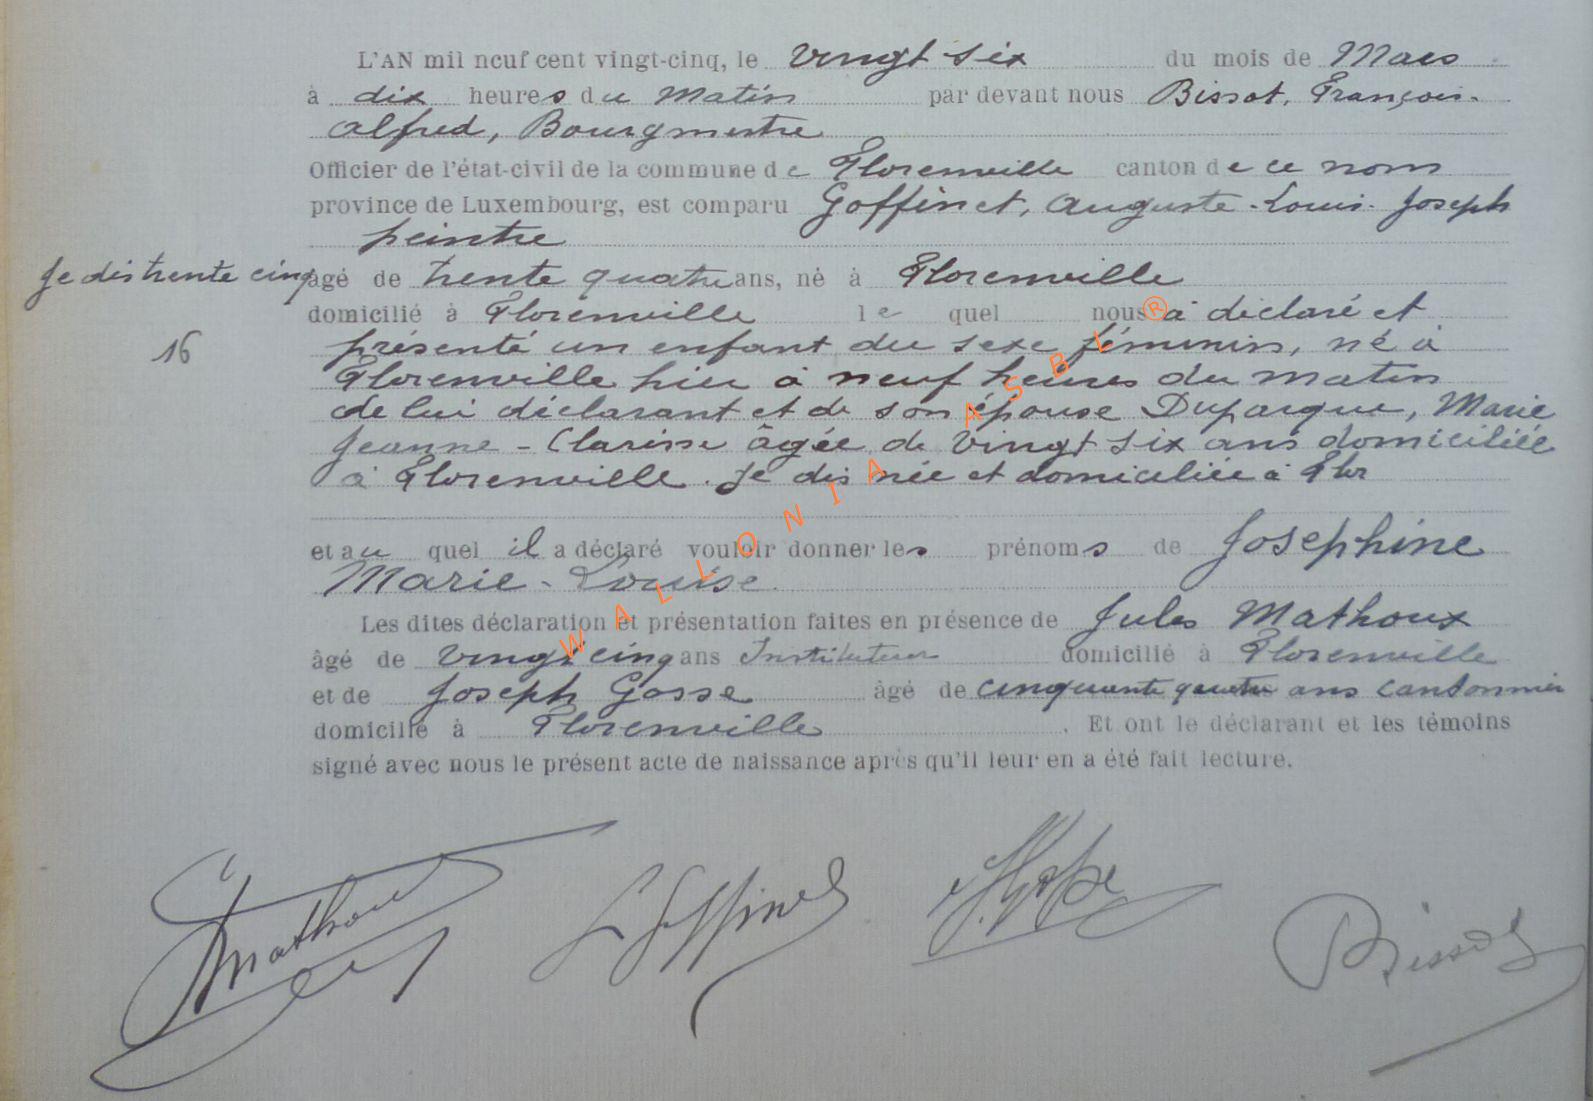 L'AN mil neuf cent vingt-cinq, le vingt six du mois de Mars
à dix heures du Matin par devant nous Bissot, François-
Alfred, Bourgmestre
Officier de l'état-civil de la commune de Florenville canton de ce nom
province de Luxembourg, est comparu Goffinet, Auguste-Louis-Joseph
peintre
Je dis trente cinq
âgé de trente quatre ans, né à Florenville
domicilié à Florenville lequel nous a déclaré et
16
présenté un enfant du sexe féminin, né à
Florenville hier à neuf heures du matin
de lui déclarant et de son épouse Duparque, Marie
Jeanne-Clarisse âgée de vingt six ans domiciliée
à Florenville. Je dis née et domiciliée à Flor
et au quel il a déclaré vouloir donner les prénoms de Joséphine
Marie-Louise.
Les dites déclaration et présentation faites en présence de Jules Mathoux
âgé de vingt cinq ans Instituteur domicilié à Florenville
et de Joseph Gosse âgé de cinquante quatre ans cantonnier
domicilié à Florenville. Et ont le déclarant et les témoins
signé avec nous le présent acte de naissance après qu'il leur en a été fait lecture.
Mathoux L Goffinet J. Gosse Bissot
WALLONIA ASBL®